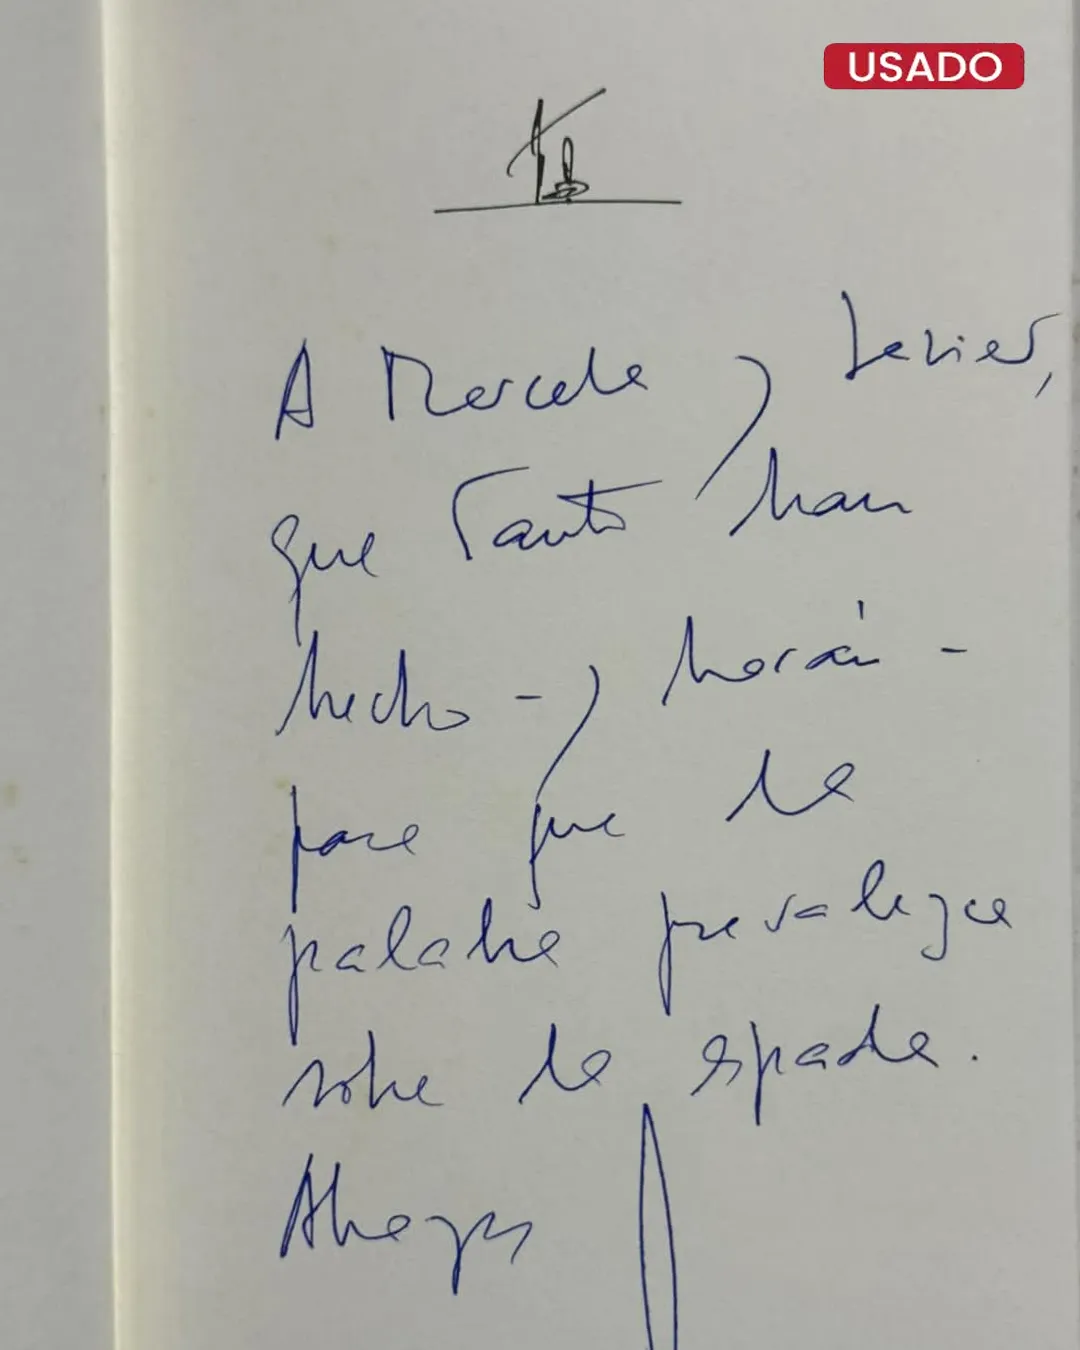 USADO
A Marcela y Javier,
que tanto han
hecho - y harán -
para que la
palabra prevalezca
sobre la espada.
Abrazos